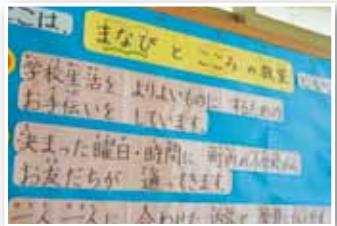 こは、
まなび と こころ の教室
学校生活を よりよいものに するための
お手伝いを しています。
決まった曜日・時間に
お友だちが 通ってきます。
一人 一人に 合わせた